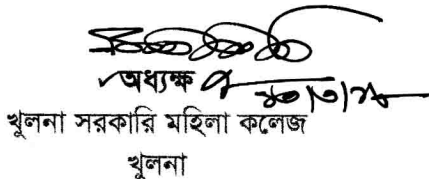 অধ্যক্ষ
খুলনা সরকারি মহিলা কলেজ
খুলনা